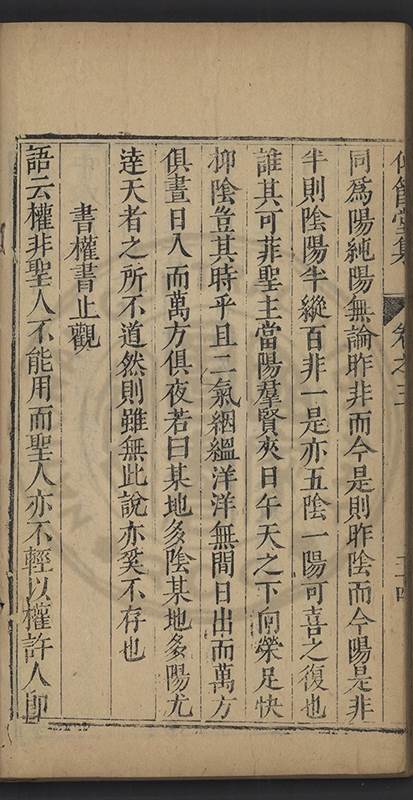 卷之三
同爲陽純陽無論昨非而今是則昨陰而今陽是非
半則陰陽半縱百非一是亦五陰一陽可喜之復也
誰其可菲聖主當陽羣賢夾日午天之下向榮足快
抑陰豈其時乎且二氣絪縕洋洋無間日出而萬方
俱晝日入而萬方俱夜若曰某地多陰某地多陽尤
達天者之所不道然則雖無此說亦奚不存也
書權書止觀
語云權非聖人不能用而聖人亦不輕以權許人卽